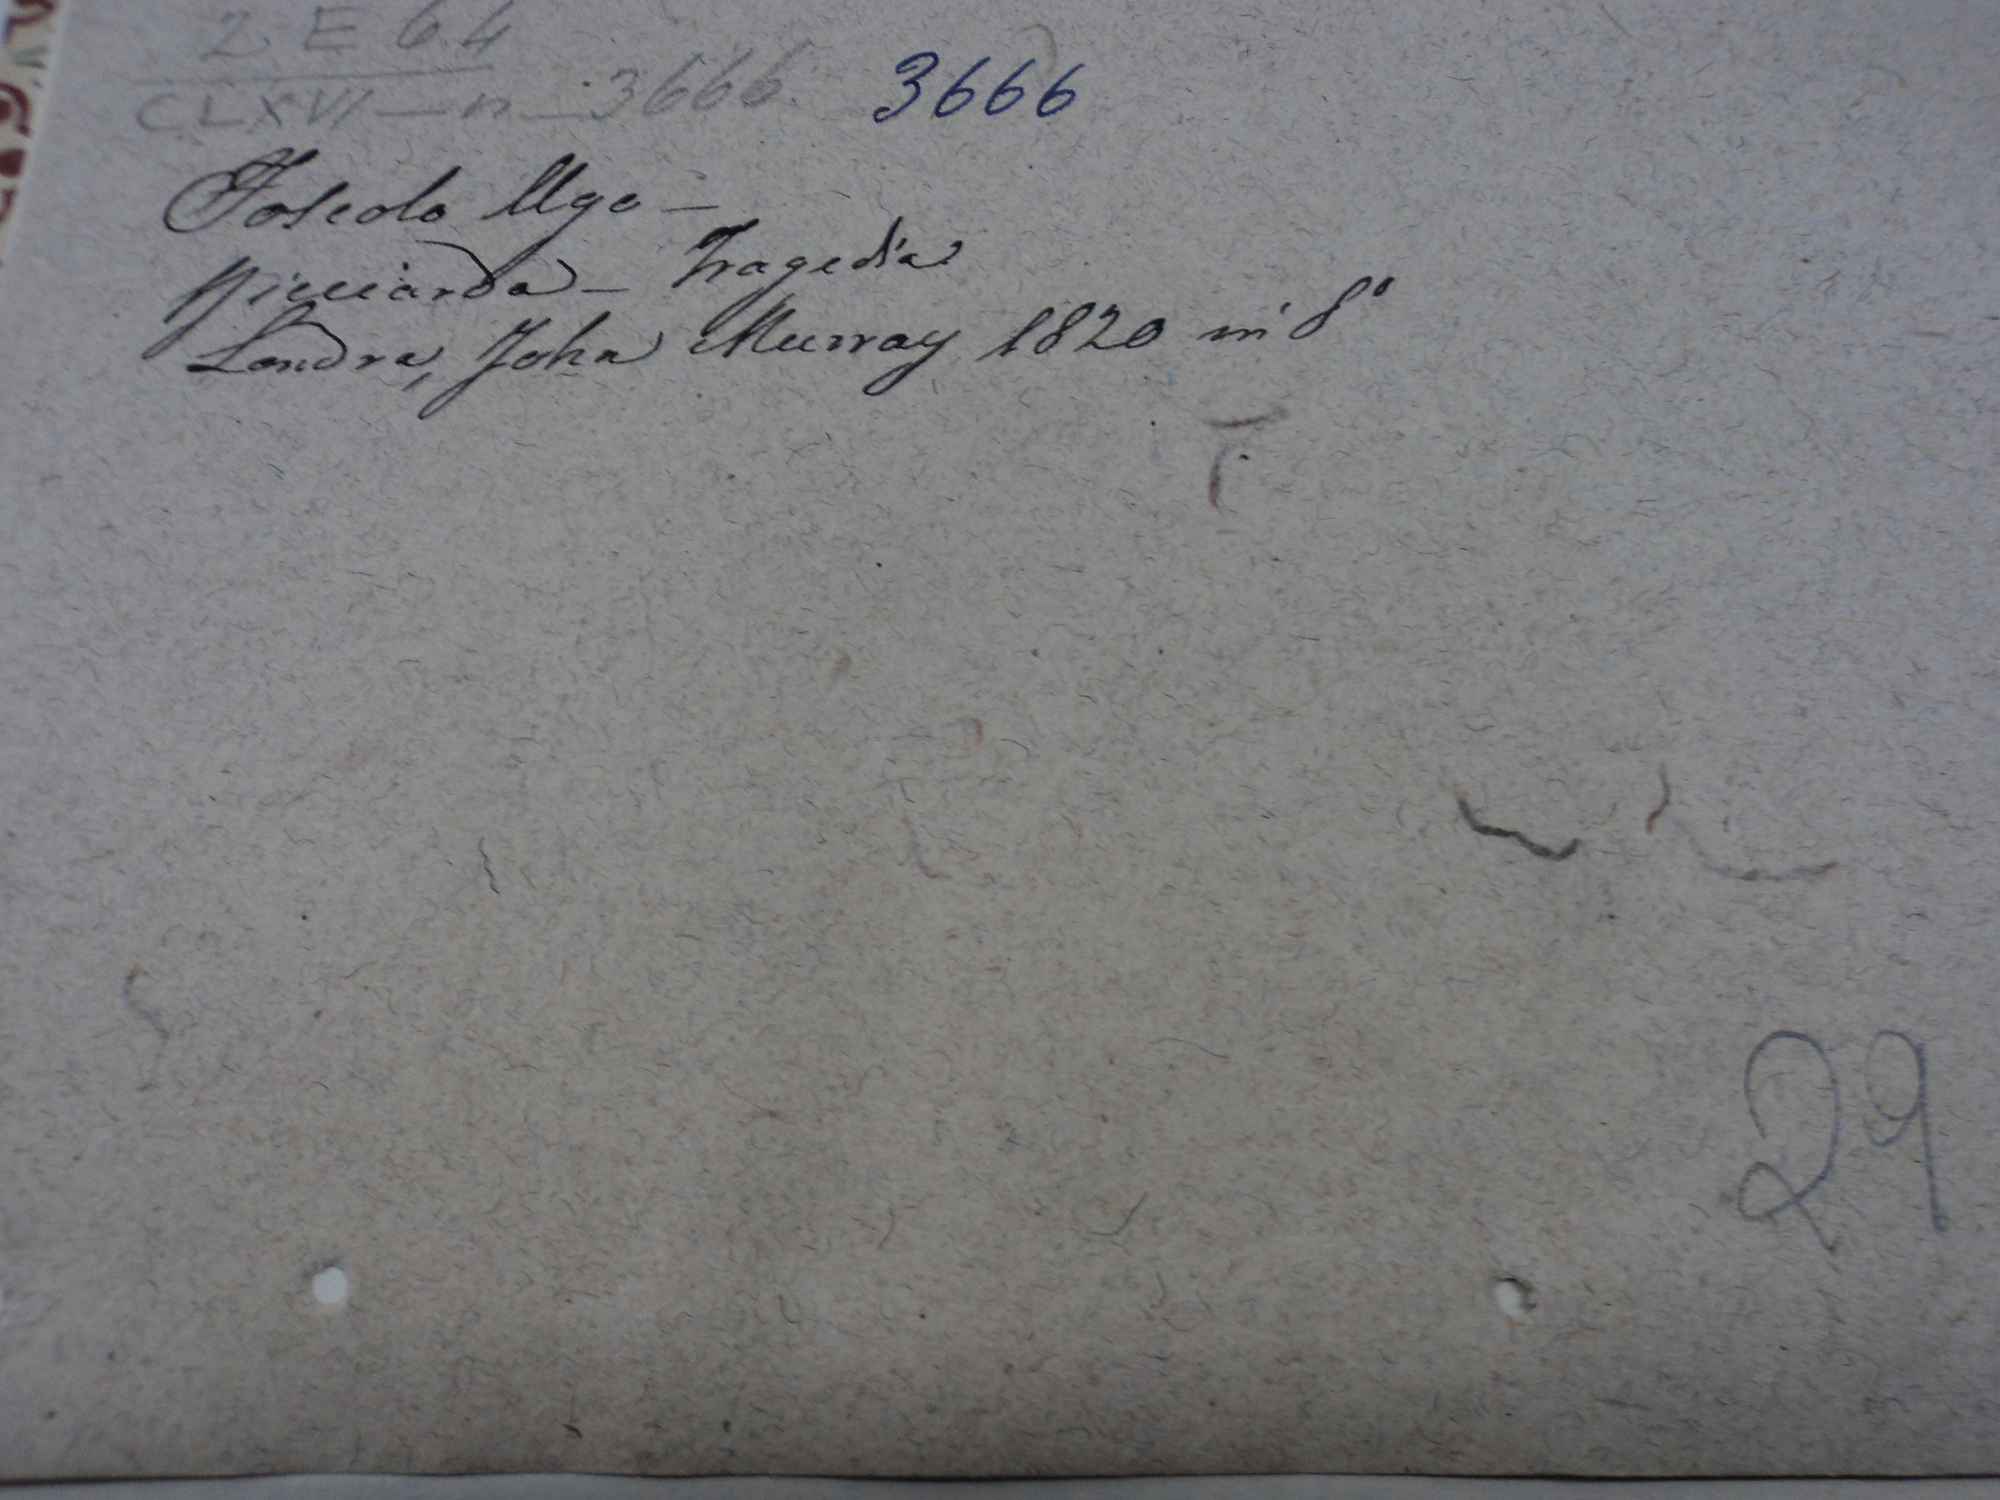 2 E 64
CLXVI — n _ 3666. 3666
Foscolo Ugo —
Ricciarda — Tragedia
Londra, John Murray 1820 in 8°
29